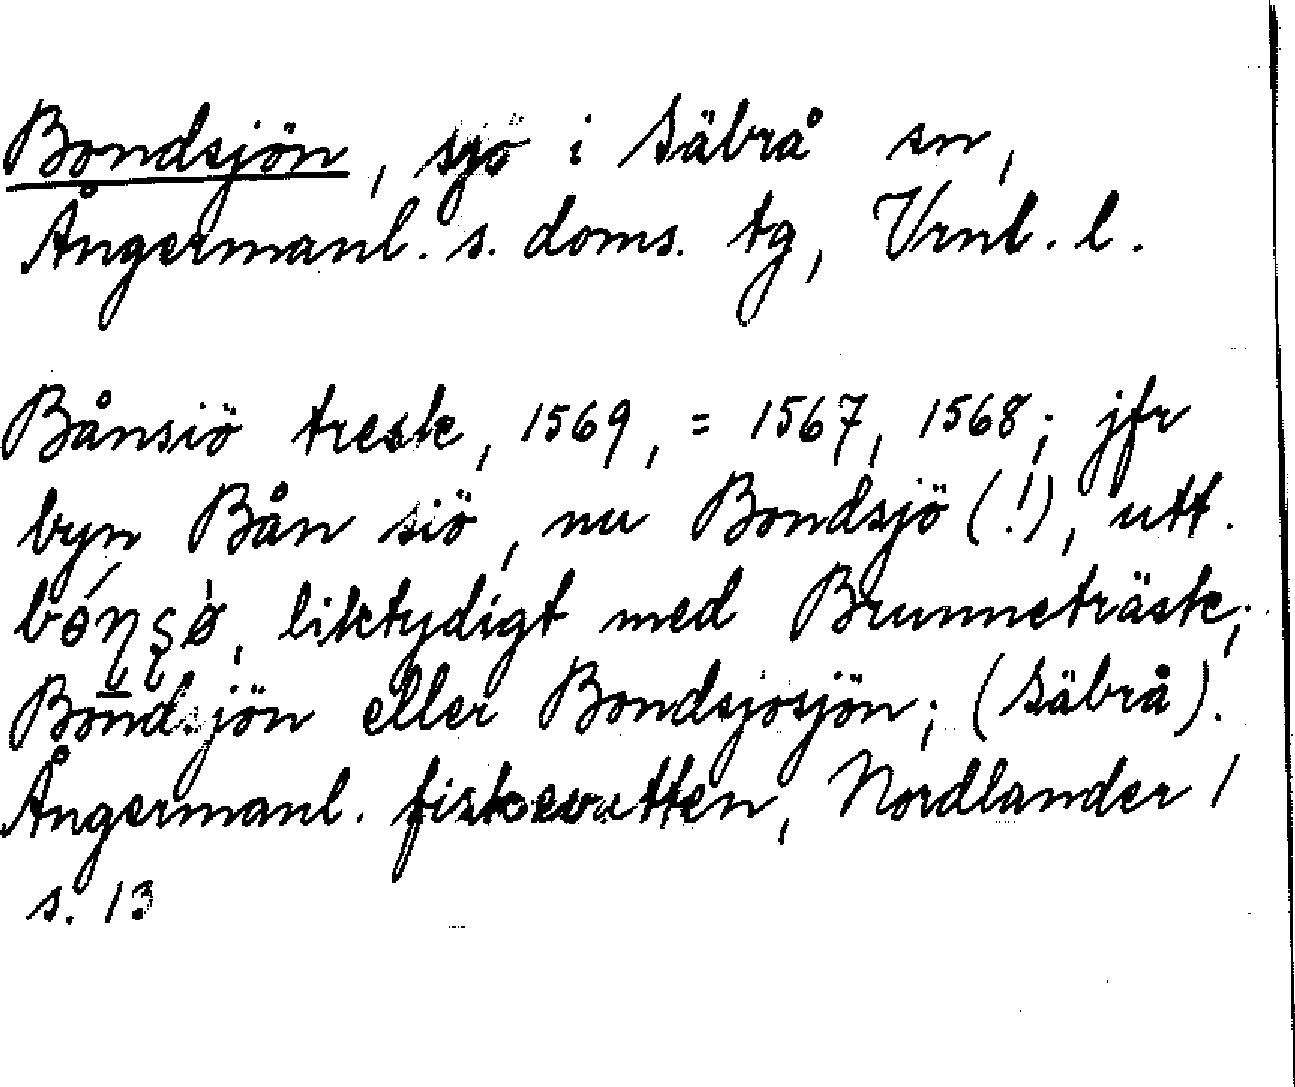 Bondsjön, sjö i Säbrå sn,
Ångermanl. s. doms. tg, Vrnl. l.
Bånsiö tresk, 1569, = 1567, 1568; jfr
byn Bån siö, nu Bondsjö (!), utt.
liktydigt med Brunneträsk;
Bondsjön eller Bondsjösjön; (Säbrå).
Ångermanl. fiskevatten, Nordlander /
s. 13